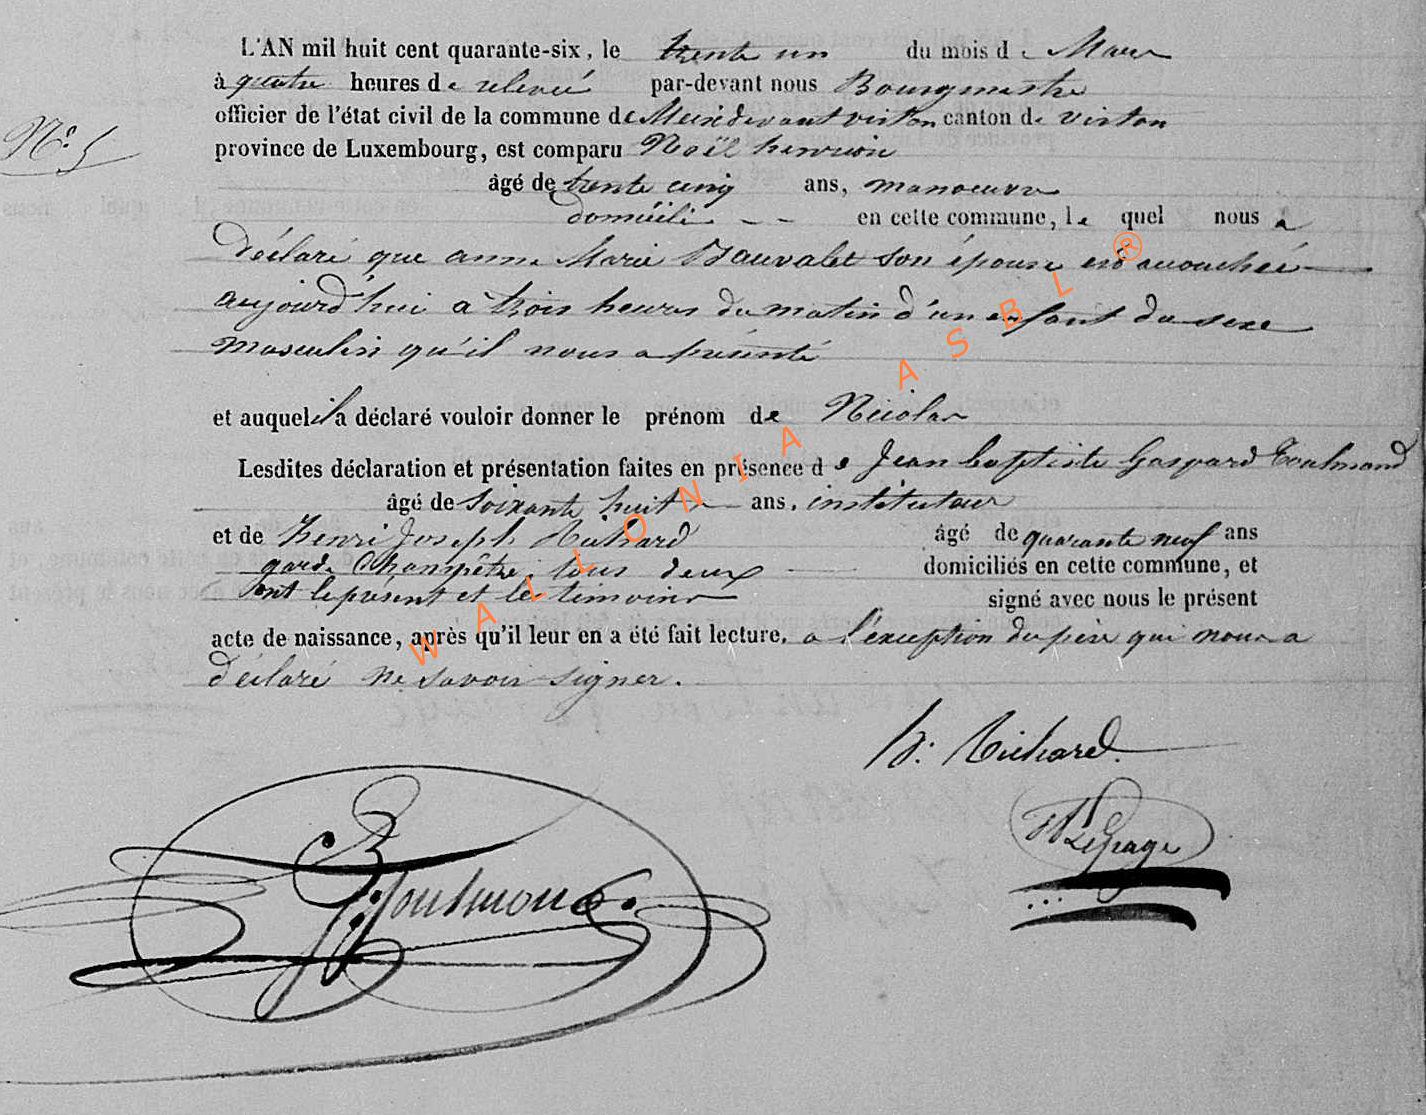 L'AN mil huit cent quarante-six, le trente un du mois de Mars
à quatre heures de relevée par-devant nous Bourgmestre
officier de l'état civil de la commune de Meixdevantvirton canton de virton
N° 5
province de Luxembourg, est comparu Noël henrion
âgé de trente cinq ans, manoeuvre
domicilié -- en cette commune, lequel nous a
déclaré que anne Marie Bauvalet son épouse est accouchée
aujourd'hui à trois heures du matin d'un enfant du sexe
masculin qu'il nous a présenté
et auquel il a déclaré vouloir donner le prénom de Nicolas
Lesdites déclaration et présentation faites en présence de Jean baptiste Gaspard Toulmond
âgé de soixante huit ans, instituteur
et de Henri Joseph Richard âgé de quarante neuf ans
garde Champêtre, tous deux domiciliés en cette commune, et
ont le présent et les témoins signé avec nous le présent
acte de naissance, après qu'il leur en a été fait lecture. a l'exception du père qui nous a
déclaré ne savoir signer.
h: Richard
Lepage
Toulmond
WALLONIA ASBL ®